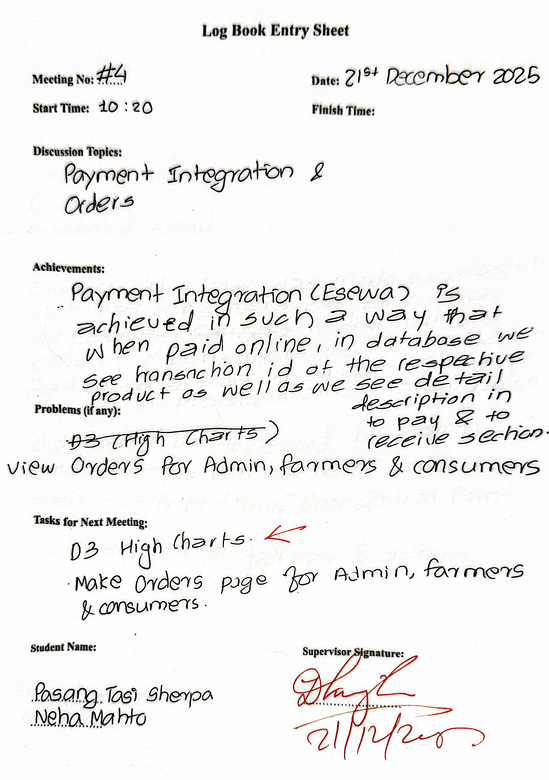 Log Book Entry Sheet
Meeting No: #4
Date: 21st December 2025
Start Time: 10:20
Finish Time:
Discussion Topics:
Payment Integration &
Orders
Achievements:
Payment Integration (Esewa) is
achieved in such a way that
when paid online, in database we
see transaction id of the respective
product as well as we see detail
description in
to pay & to
receive section.
Problems (if any):
D3 (High Charts)
view Orders for Admin, farmers & consumers
Tasks for Next Meeting:
D3 High Charts.
· Make Orders page for Admin, farmers
& consumers.
Student Name:
Supervisor Signature:
Pasang Tasi Sherpa
Neha Mahto
21/12/2025